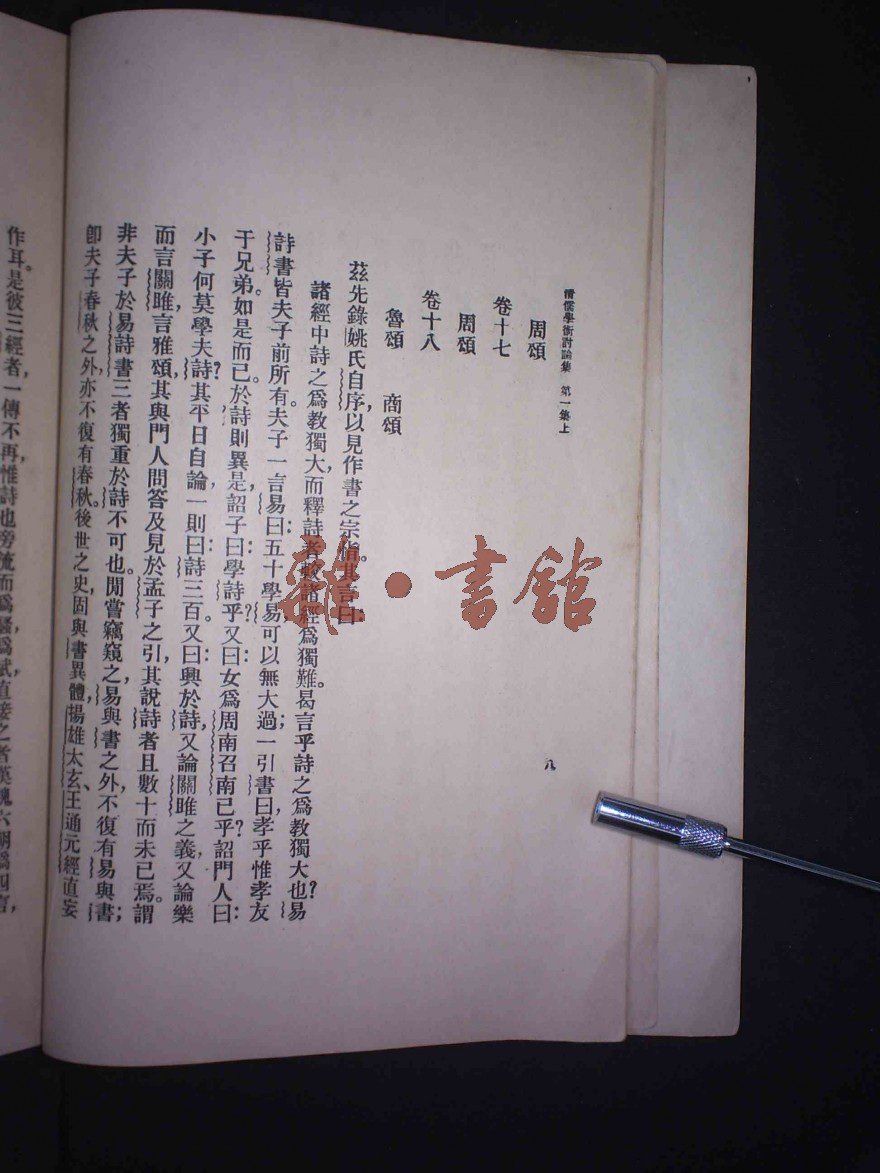 清儒學術討論集　第一集上
八
周頌
卷十七
周頌
卷十八
魯頌　商頌
茲先錄姚氏自序，以見作書之宗指。其言曰：
諸經中詩之為教獨大，而釋詩者較諸經為獨難。曷言乎詩之為教獨大也？易
詩書皆夫子前所有。夫子一言易曰：五十學易，可以無大過；一引書曰：孝乎惟孝，友
于兄弟。如是而已。於詩則異是，詔子曰：學詩乎？又曰：女為周南召南已乎？詔門人曰：
小子何莫學夫詩？其平日自論，一則曰：詩三百。又曰：興於詩，又論關雎之義，又論樂
而言關雎，言雅頌，其與門人問答及見於孟子之引，其說詩者且數十而未已焉。謂
非夫子於易詩書三者獨重於詩不可也。閒嘗竊窺之，易與書之外，不復有易與書；
卽夫子春秋之外，亦不復有春秋。後世之史，固與書異體，揚雄太玄、王通元經直妄
作耳。是彼三經者，一傳不再，惟詩也旁流而為騷，為賦，直接之者漢魏六朝為四言，
雜·書館